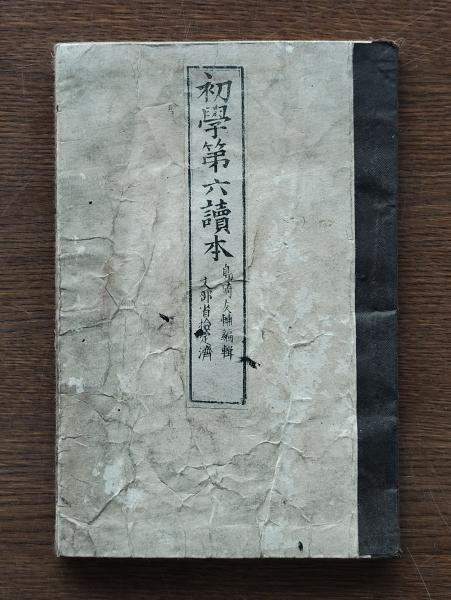 初學第六讀本
島崎友輔編輯
文部省檢定濟